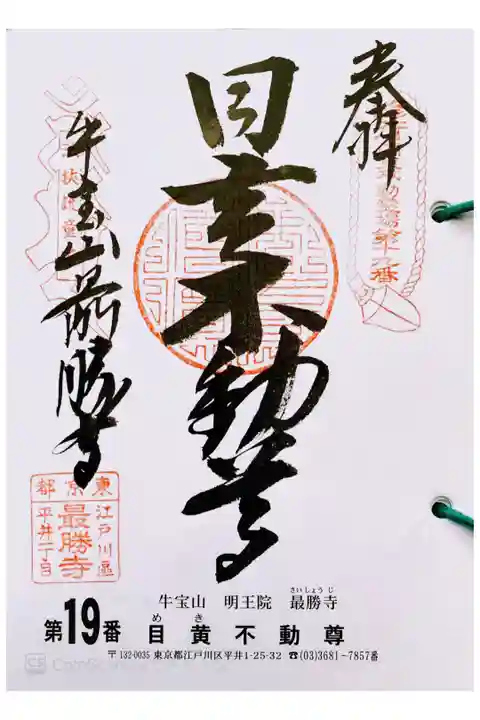 奉拝
目黄不動尊
牛宝山最勝寺
東京都
江戸川區
最勝寺
平井一丁目
さいしょうじ
牛宝山 明王院 最勝寺
めき
第19番 目黄不動尊
〒132-0035 東京都江戸川区平井1-25-32 ☎(03)3681~7857番